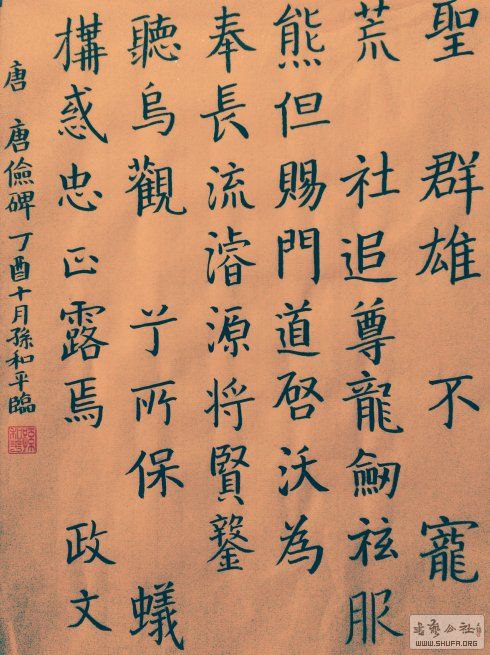 聖 群雄 不 寵
荒 社追尊龍劒服
熊但賜門道啓沃為
奉長流濬源将賢鏧
聽烏觀 所保 蟻
構惑忠正露焉 政文
唐 唐儉碑 丁酉十月孫和平臨
书艺公社
WWW.SHUFA.ORG